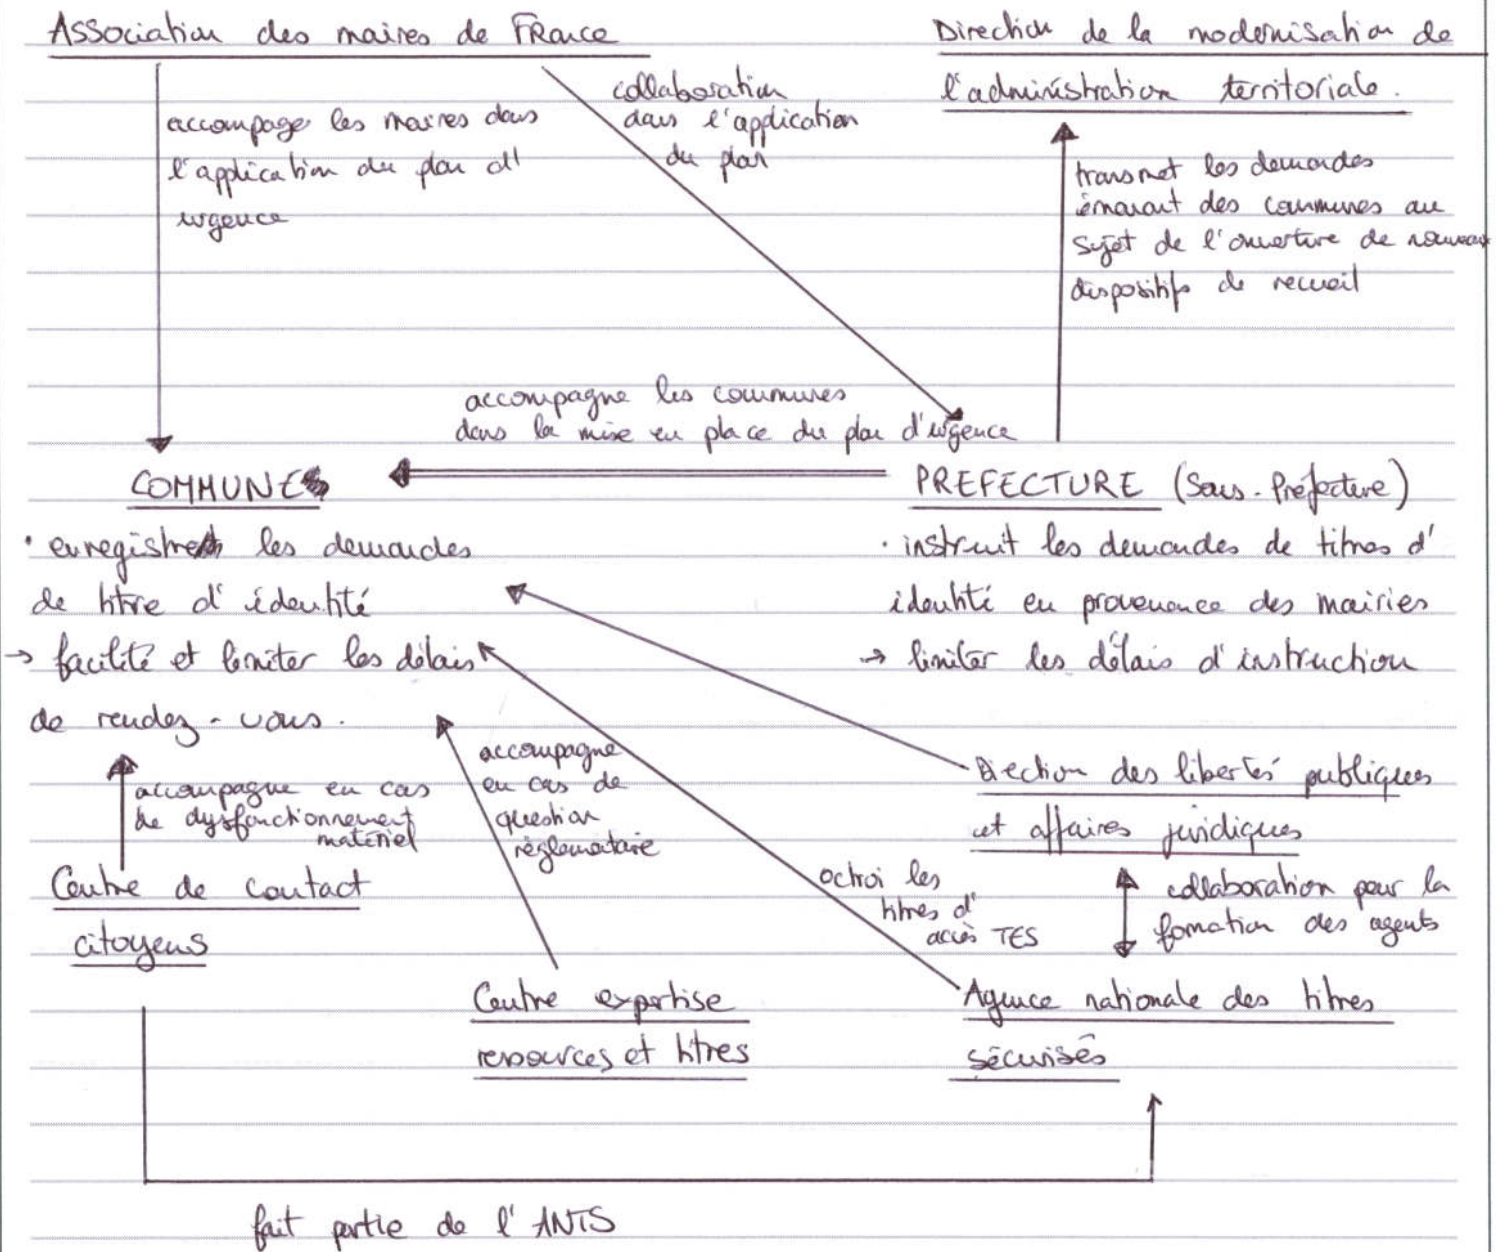 Association des maires de France
Direction de la modernisation de
l'administration territoriale.
accompage les maires dans
l'application du plan d'
urgence
collaboration
dans l'application
du plan
transmet les demandes
émanant des communes au
sujet de l'ouverture de nouveaux
dispositifs de recueil
accompagne les communes
dans la mise en place du plan d'urgence
COMMUNE
• enregistre les demandes
de titre d'identité
→ facilité et limiter les délais
de rendez-vous.
PREFECTURE (Sous-Préfecture)
• instruit les demandes de titres d'
identité en provenance des mairies
→ limiter les délais d'instruction
accompagne en cas
de dysfonctionnement
matériel
accompagne
en cas de
question
réglementaire
Direction des libertés publiques
et affaires juridiques
Centre de contact
citoyens
octroi les
titres d'
accès TES
collaboration pour la
formation des agents
Centre expertise
ressources et titres
Agence nationale des titres
sécurisés
fait partie de l'ANTS